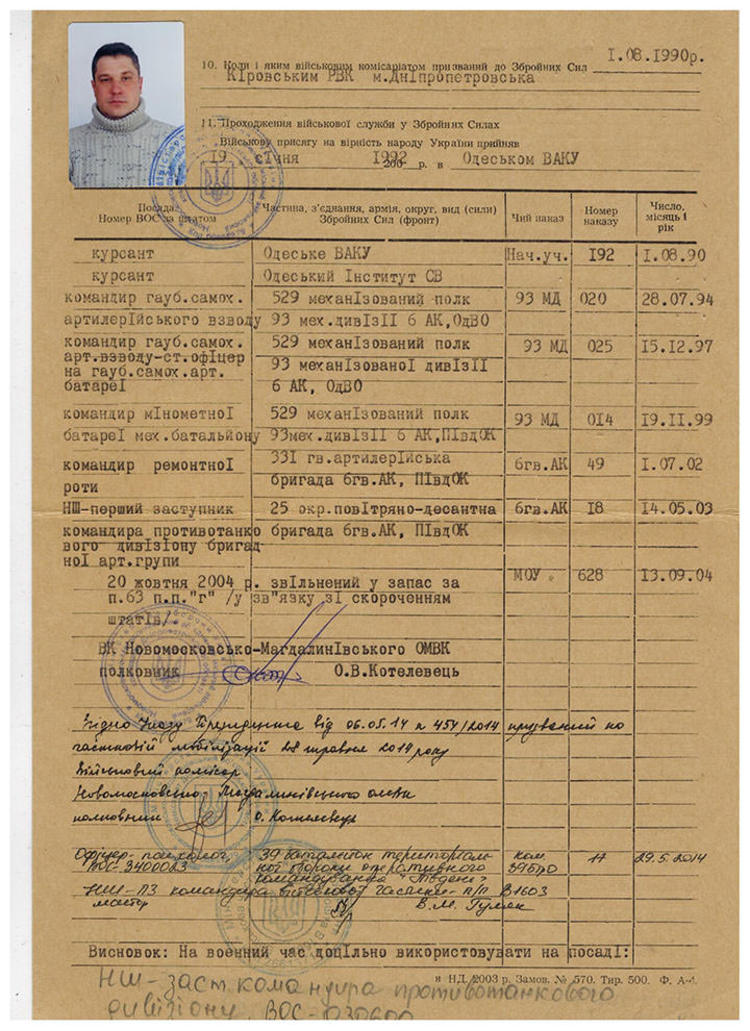 10. Коли і яким військовим комісаріатом призваний до Збройних Сил 1.08.1990р.
Кіровським РВК м.Дніпропетровська
11. Проходження військової служби у Збройних Силах
Військову присягу на вірність народу України прийняв
19 січня 1992 200 р. в Одеськом ВАКУ
Посада. Номер ВОС за штатом Частина, з'єднання, армія, округ, вид (сили) Збройних Сил (фронт) Чий наказ Номер наказу Число, місяць і рік
курсант Одеське ВАКУ Нач.уч. 192 1.08.90
курсант Одеський Інститут СВ
командир гауб.самох. 529 механізований полк 93 МД 020 28.07.94
артилерійського взводу 93 мех.дивізії 6 АК,ОдВО
командир гауб.самох. 529 механізований полк 93 МД 025 15.12.97
арт.взводу-ст.офіцер 93 механізованої дивізії
на гауб.самох.арт.
батареї 6 АК, ОдВО
командир мінометної 529 механізований полк 93 МД 014 19.11.99
батареї мех.батальйону 93мех.дивізії 6 АК,ПівдОК
командир ремонтної 331 гв.артилерійська 6гв.АК 49 1.07.02
роти бригада 6гв.АК, ПівдОК
НШ-перший заступник 25 окр.повітряно-десантна 6гв.АК 18 14.05.03
командира противотанко бригада 6гв.АК, ПівдОК
вого дивізіону бригад
ної арт.групи
20 жовтня 2004 р. звільнений у запас за МОУ 628 13.09.04
п.63 п.п."г" /у зв"язку зі скороченням
штатів/
ВК Новомосковсько-Магдалинівського ОМВК
полковник О.В.Котелевець
Згідно Указу Президента від 06.05.14 № 454/2014 призваний по
частковій мобілізації 28 травня 2014 року
Військовий комісар
Новомосковсько-Магдалинівського
полковник О. Котелевець
Офіцер-психолог, 39 батальйон територіаль Ком. 29.5.2014
ВОС-3400023 ної оборони оперативного 39БТрО
командування "Південь"
НШ-ПЗ командира військової частини-п/п В1603
майор В.М.
Висновок: На воєнний час доцільно використовувати на посаді:
НД. 2003 р. Замов. № 570. Тир. 500. Ф. А-4.
НШ-заст командира противотанкового
дивізіону. ВОС-030600